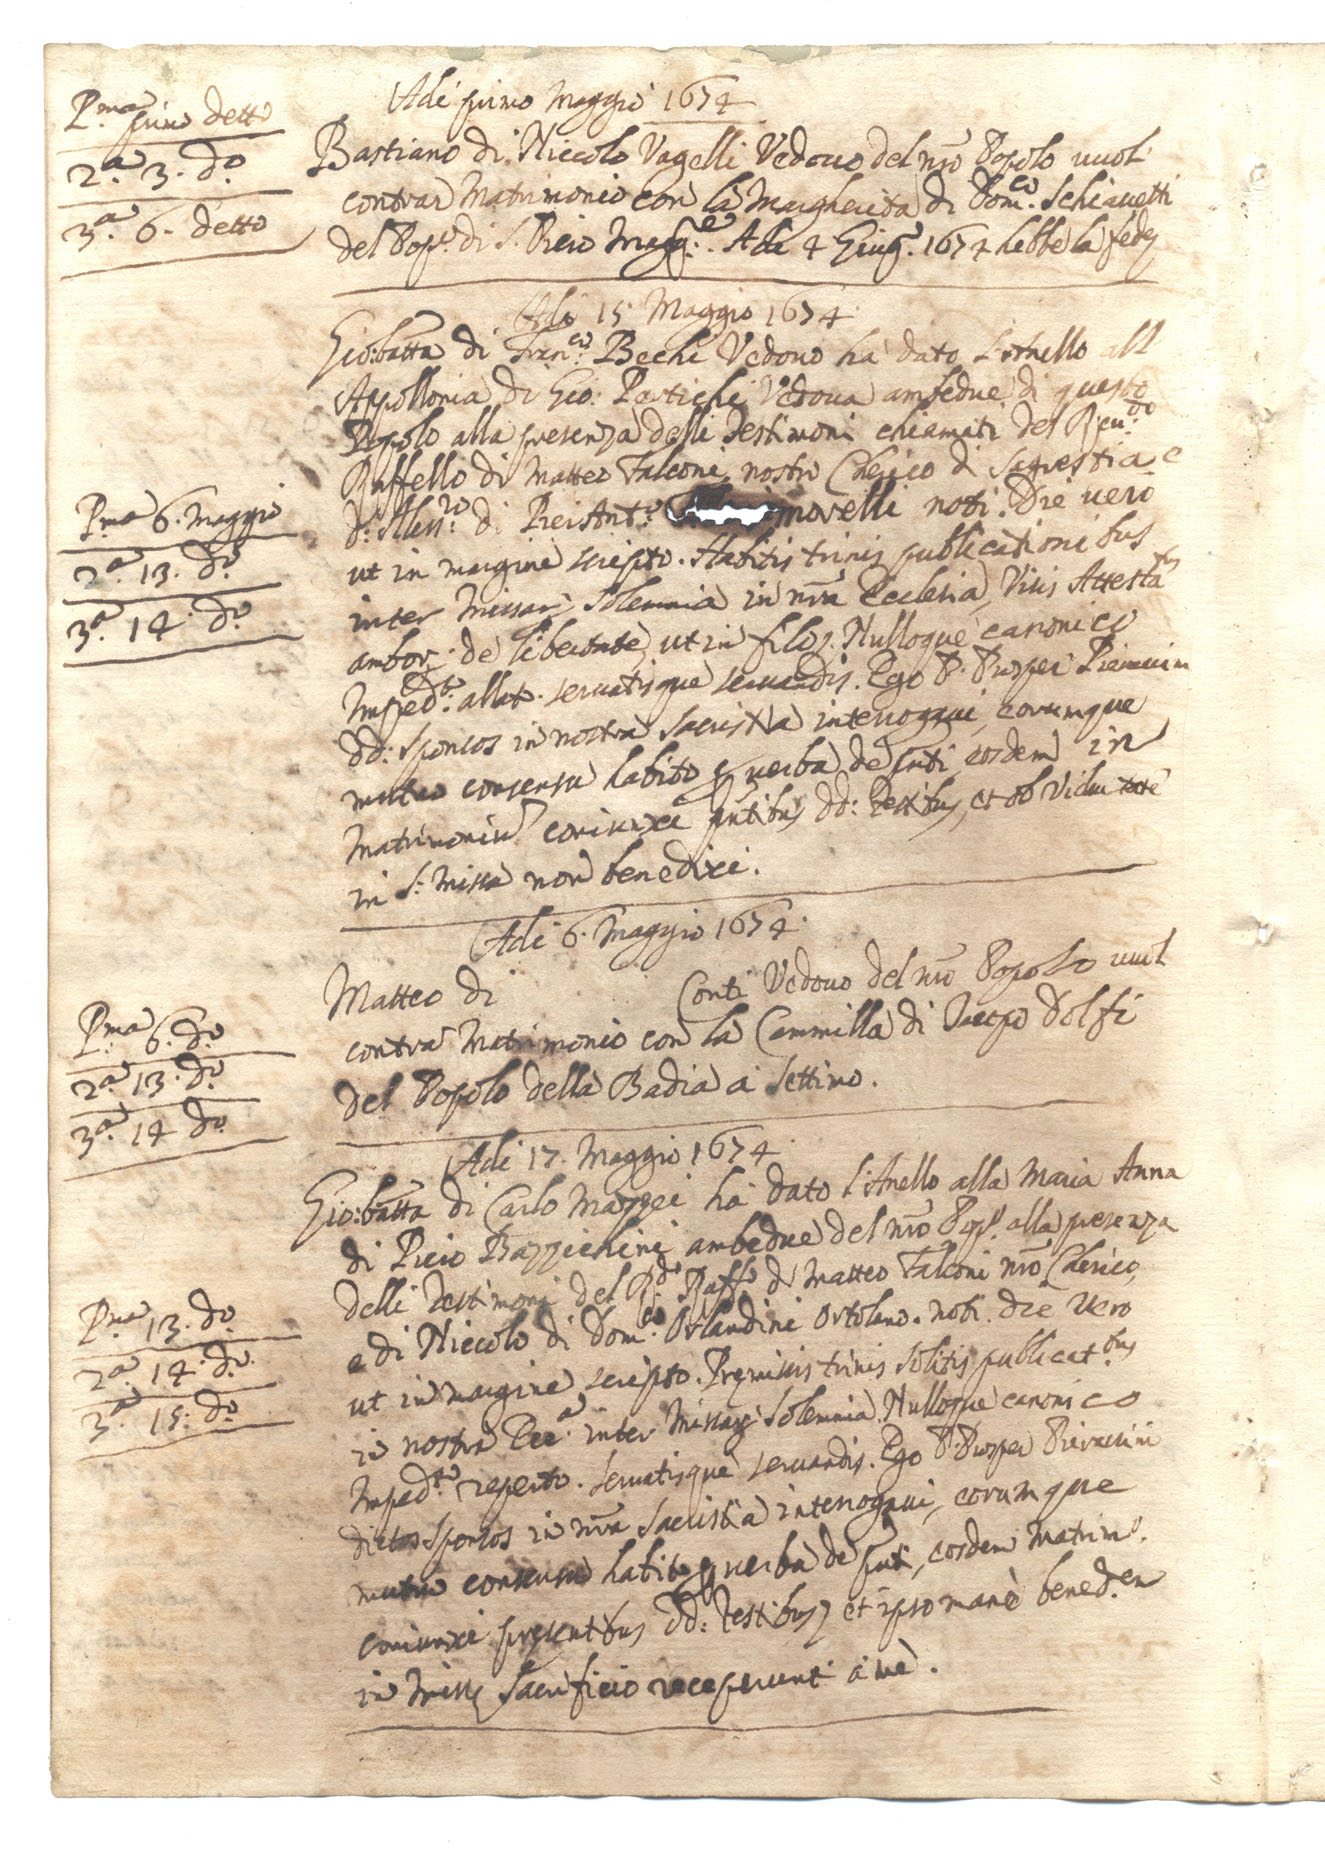 Adi primo Maggio 1674
P.ma primo detto
2.a 3. d.o
3.a 6. detto
Bastiano di Niccolo Vagelli Vedouo del nro Popolo uuol
contrar Matrimonio con la Margherita di Dom.co Schiauetti
del Pop.o di S. Piero Adi 4 Giug.o 1674 hebbe la fede
Adi 15 Maggio 1674
Gio:batta di Fran.co Bechi Vedouo ha dato l'Anello all
Appollonia di Gio: Pertichi Vedoua ambedue di questo
Popolo alla presenza delli Testimoni chiamati del Reu.do
Raffello di Matteo Falconi nostro Cherico di Sagrestia e
d: Aless.ro di Pierant.o movelli noti. Die uero
P.ma 6. Maggio
2.a 13. d.o
3.a 14. d.o
ut in margine scripto. Habitis trinis publicationibus
inter Missar. Solemnia in nra Ecclesia, Visis Attesta.bus
ambor. de libertate, ut in filo, Nulloque canonico
Imped.to allato. seruatisque seruandis. Ego P. Prosper Pieruccini
dd: sponsos in nostra Sacristia interrogaui, eorumque
mutuo consensu habito p uerba de pnti eosdem in
Matrimoniu coniunxi pntibus dd: Testibus, et ob Vidu
in S: Missa non benedixi.
Adi 6. Maggio 1674.
Matteo di Conti Vedouo del nro Popolo uuol
contrar Matrimonio con la Cammilla di Jacopo Dolfi
del Popolo della Badia a Settimo.
P.ma 6. d.o
2.a 13. d.o
3.a 14 d.o
Adi 17. Maggio 1674.
Gio:batta di Carlo Mazzei ha dato l'Anello alla Maria Anna
di Piero Bazzichini ambedue del nro Pop.o alla presenza
delli Testimoni del R.do Raff.o di Matteo Falconi nro Cherico,
e di Niccolo di Dom.co Orlandini Ortolano. noti. die Vero
P.ma 13. d.o
2.a 14. d.o
3.a 15. d.o
ut in margine scripto. Premissis trinis solitis publicat.bus
in nostra Ecc.a inter Missar. Solemnia. Nulloque canonico
Imped.to reperto. seruatisque seruandis. Ego P. Prosper Pieruccini
dictos Sponsos in nra Sacristia interrogaui, eorumque
mutuo consensu habito p uerba de pnti, eosdem Matrim.o
coniunxi presentibus dd: Testibus, et ipso mane bened.em
in Misse Sacrificio receperunt a me.